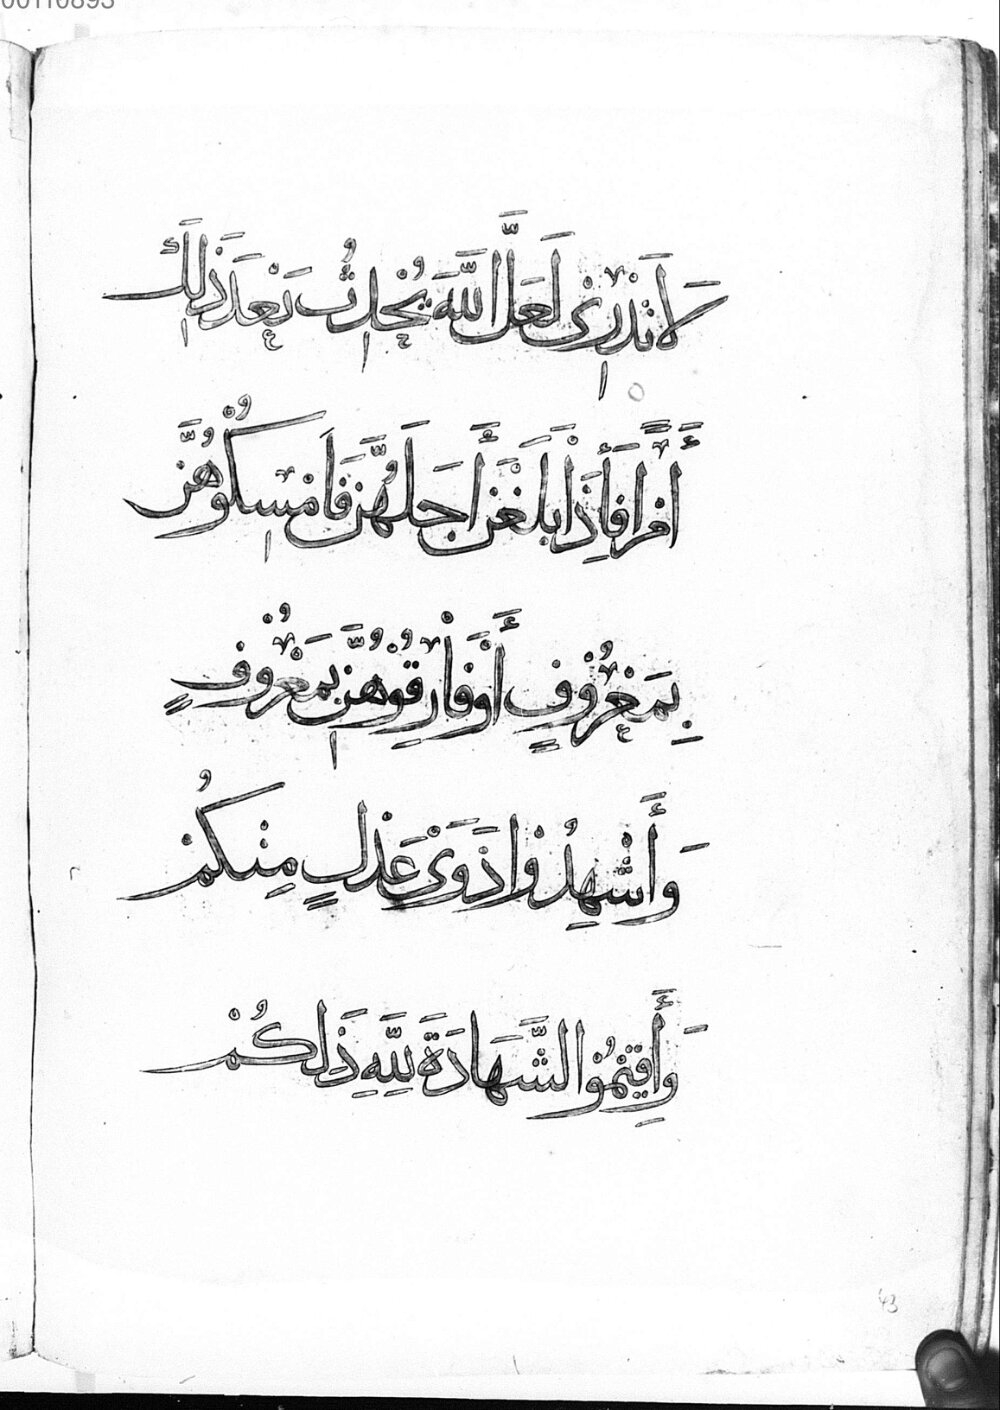 00110893
لَا تَدْرِى لَعَلَّ اللَّهَ يُحْدِثُ بَعْدَ ذَلِكَ
أَمْرًا فَإِذَا بَلَغْنَ أَجَلَهُنَّ فَأَمْسِكُوهُنَّ
بِمَعْرُوفٍ أَوْ فَارِقُوهُنَّ بِمَعْرُوفٍ
وَأَشْهِدُوا ذَوَىْ عَدْلٍ مِنْكُمْ
وَأَقِيمُوا الشَّهَادَةَ لِلَّهِ ذَلِكُمْ
43